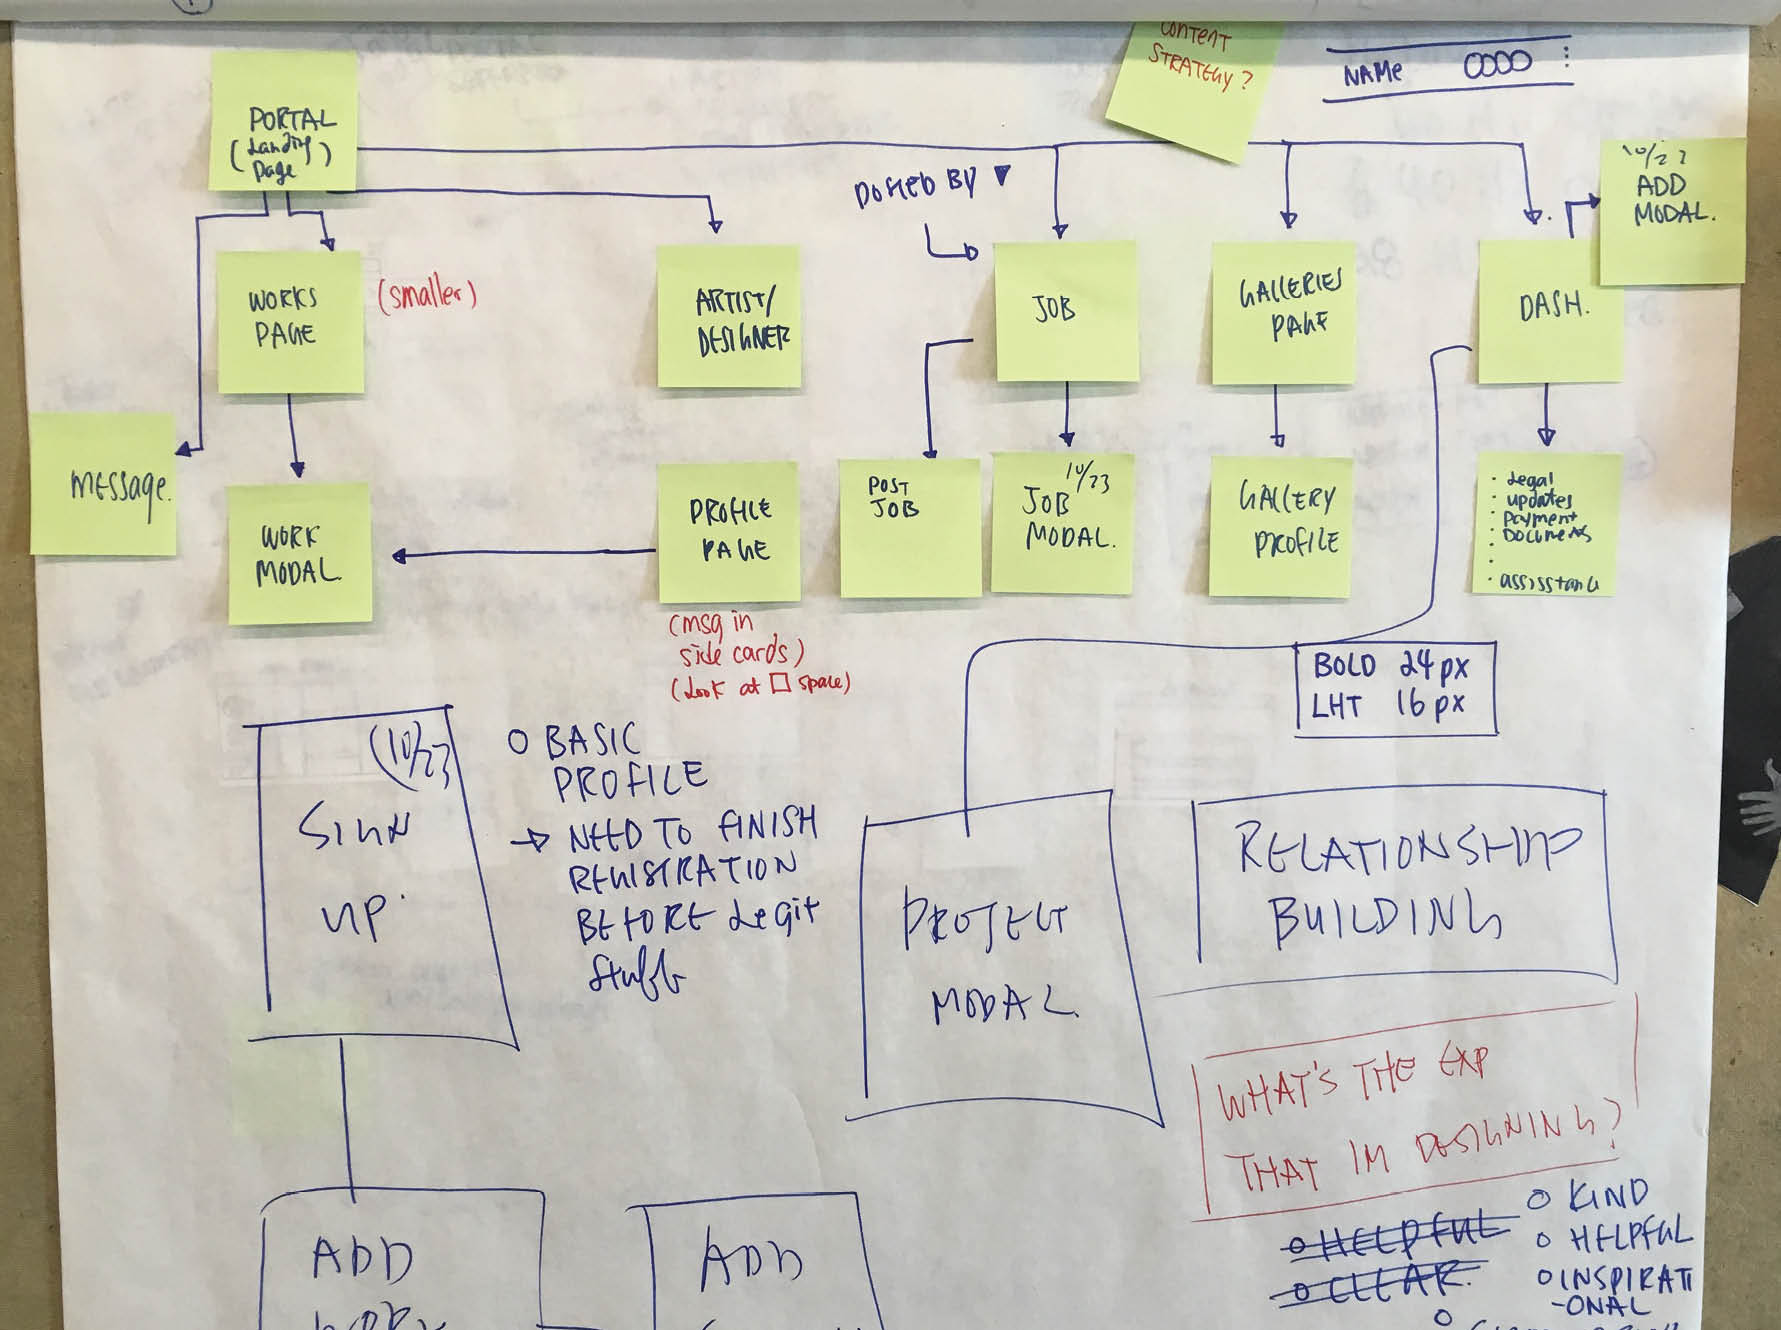 CONTENT
STRATEGY?
NAME
PORTAL
(Landing
Page)
10/23
ADD
MODAL.
POSTED BY
WORKS
PAGE
(smaller)
ARTIST/
DESIGNER
JOB
GALLERIES
PAGE
DASH.
MESSAGE.
WORK
MODAL
PROFILE
PAGE
(msg in
side cards)
(Look at □ space)
POST
JOB
10/23
JOB
MODAL.
GALLERY
PROFILE
· Legal
· updates
· Payment
· Documents
·
·
· assistance
BOLD 24px
LHT 16px
(10/23
SIGN
UP.
O BASIC
PROFILE
→ NEED TO FINISH
REGISTRATION
BEFORE LEGIT
stuff
PROJECT
MODAL.
RELATIONSHIP
BUILDING
WHAT'S THE EXP
THAT IM DESIGNING?
O HELPFUL
O CLEAR.
O KIND
O HELPFUL
O INSPIRATI
-ONAL
ADD
WORK
ADD